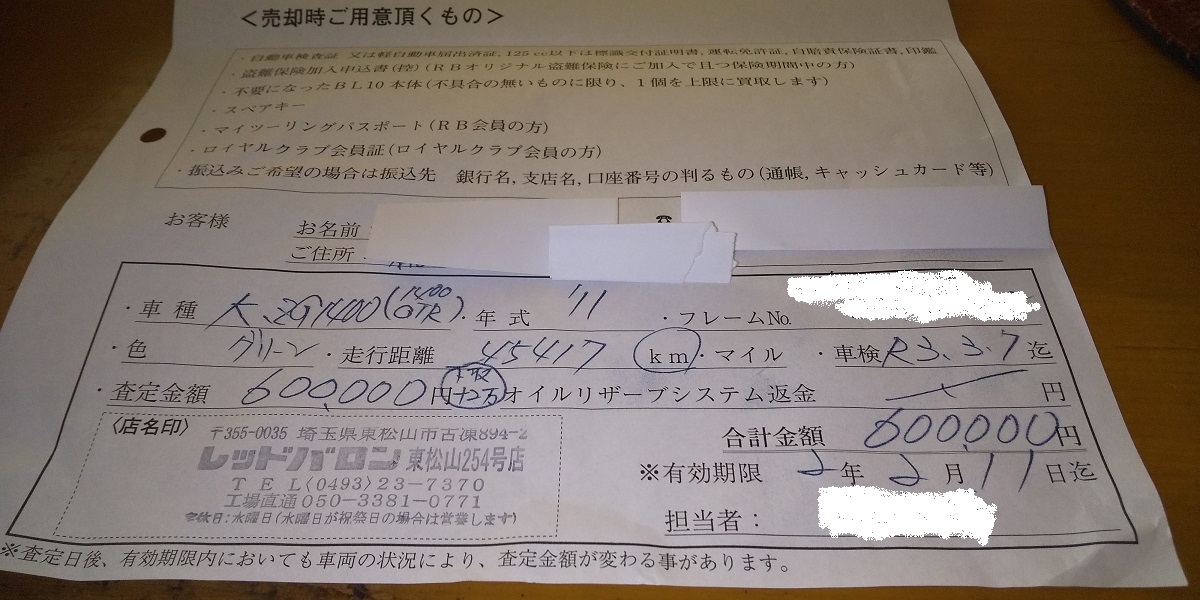 ＜売却時ご用意頂くもの＞
・自動車検査証 又は軽自動車届出済証, 125cc以下は標識交付証明書, 運転免許証, 自賠責保険証書, 印鑑
・盗難保険加入申込書(控)(RBオリジナル盗難保険にご加入で且つ保険期間中の方)
・不要になったBL10本体(不具合の無いものに限り、1個を上限に買取します)
・スペアキー
・マイツーリングパスポート(RB会員の方)
・ロイヤルクラブ会員証(ロイヤルクラブ会員の方)
・振込みご希望の場合は振込先 銀行名, 支店名, 口座番号の判るもの(通帳, キャッシュカード等)
お客様 お名前 ☎
ご住所
・車種 K. ZG1400(1400GTR)・年式 '11 ・フレームNo.
・色 グリーン ・走行距離 45417 km・マイル ・車検 R3.3.7 迄
・査定金額 600,000円 +2万 オイルリザーブシステム返金 円
〈店名印〉
〒355-0035 埼玉県東松山市古凍894-2
レッドバロン 東松山254号店
TEL〈0493〉23-7370
工場直通 050-3381-0771
定休日:水曜日(水曜日が祝祭日の場合は営業します)
合計金額 600,000円
※有効期限 2年2月11日迄
担当者：
※査定日後、有効期限内においても車両の状況により、査定金額が変わる事があります。